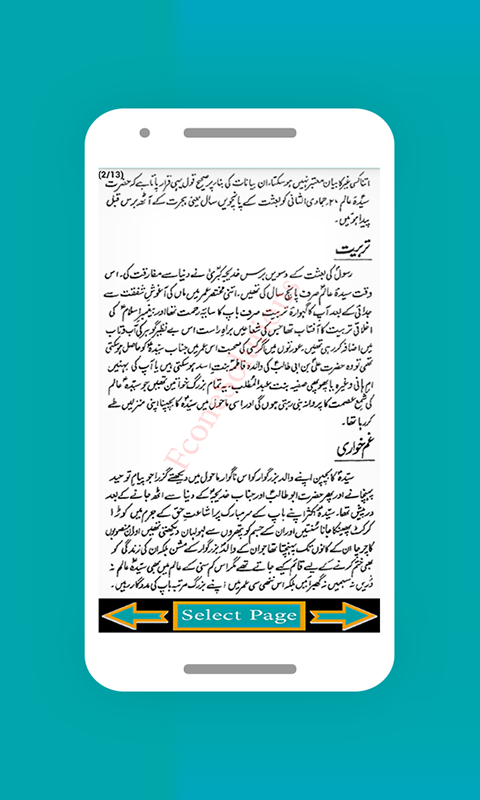 (2/13)
اتنا کسی غیر کا بیان معتبر نہیں ہو سکتا، ان بیانات کی بناء پر صحیح قول یہی قرار پاتا ہے کہ حضرت
سیّدۂ عالم ۲۰؍جمادی الثانی کو بعثت کے پانچویں سال یعنی ہجرت کے آٹھ برس قبل
پیدا ہوئیں۔
تربیت
رسولؐ کی بعثت کے دسویں برس خدیجہ کبریٰ نے دنیا سے مفارقت کی۔ اس
وقت سیدۂ عالم صرف پانچ سال کی تھیں۔ اتنی مختصر عمر میں ماں کی آغوشِ شفقت سے
جدائی کے بعد آپ کا گہوارۂ تربیت صرف باپ کا سایۂ رحمت تھا اور پیغمبرِ اسلامؐ کی
اخلاقی تربیت کا آفتاب تھا جس کی شعاعیں براہِ راست اس بے نظیر گوہر کی آب و تاب
میں اضافہ کر رہی تھیں۔ عورتوں میں اگر کسی کی صحبت اس عمر میں جناب سیدہ کو حاصل ہو سکتی
تھی تو وہ حضرت علیؑ بن ابی طالبؑ کی والدہ فاطمہؑ بنت اسد ہو سکتی ہیں یا آپ کی بہنیں
ام ہانی وغیرہ یا پھوپھی صفیہ بنت عبدالمطلب۔ یہ تمام بزرگ خواتین تھیں جو سیدۂ عالم
کی شمعِ عصمت کا پروانہ بنی رہتی ہوں گی اور اسی ماحول میں سیدہ کا بچپنا اپنی منزلیں طے
کر رہا تھا۔
غم خواری
سیدہؑ کا بچپن اپنے والد بزرگوار کو اس ناگوار ماحول میں دیکھتے گزرا جو پیامِ توحید
پہنچانے اور پھر حضرت ابوطالبؑ اور جناب خدیجہؑ کے دنیا سے اٹھ جانے کے بعد
درپیش تھا۔ سیدہؑ اکثر اپنے باپ کے سر مبارک پر اشاعتِ حق کے جرم میں کوڑا
کرکٹ پھینکا جانا سنتیں اور ان کے جسم کو پتھروں سے لہولہان دیکھتی تھیں اور ان منصوبوں
کا چرچا ان کے کانوں تک پہنچتا تھا جو ان کے والد بزرگوار کے مشن بلکہ ان کی زندگی کو
بھی ختم کرنے کے لیے قائم کیے جاتے تھے مگر اس کم سنی کے عالم میں بھی سیدۂ عالم نہ
ڈریں نہ سہمیں نہ گھبرائیں بلکہ اس ننھی سی عمر میں اپنے بزرگ مرتبہ باپ کی مددگار رہیں۔
Select Page